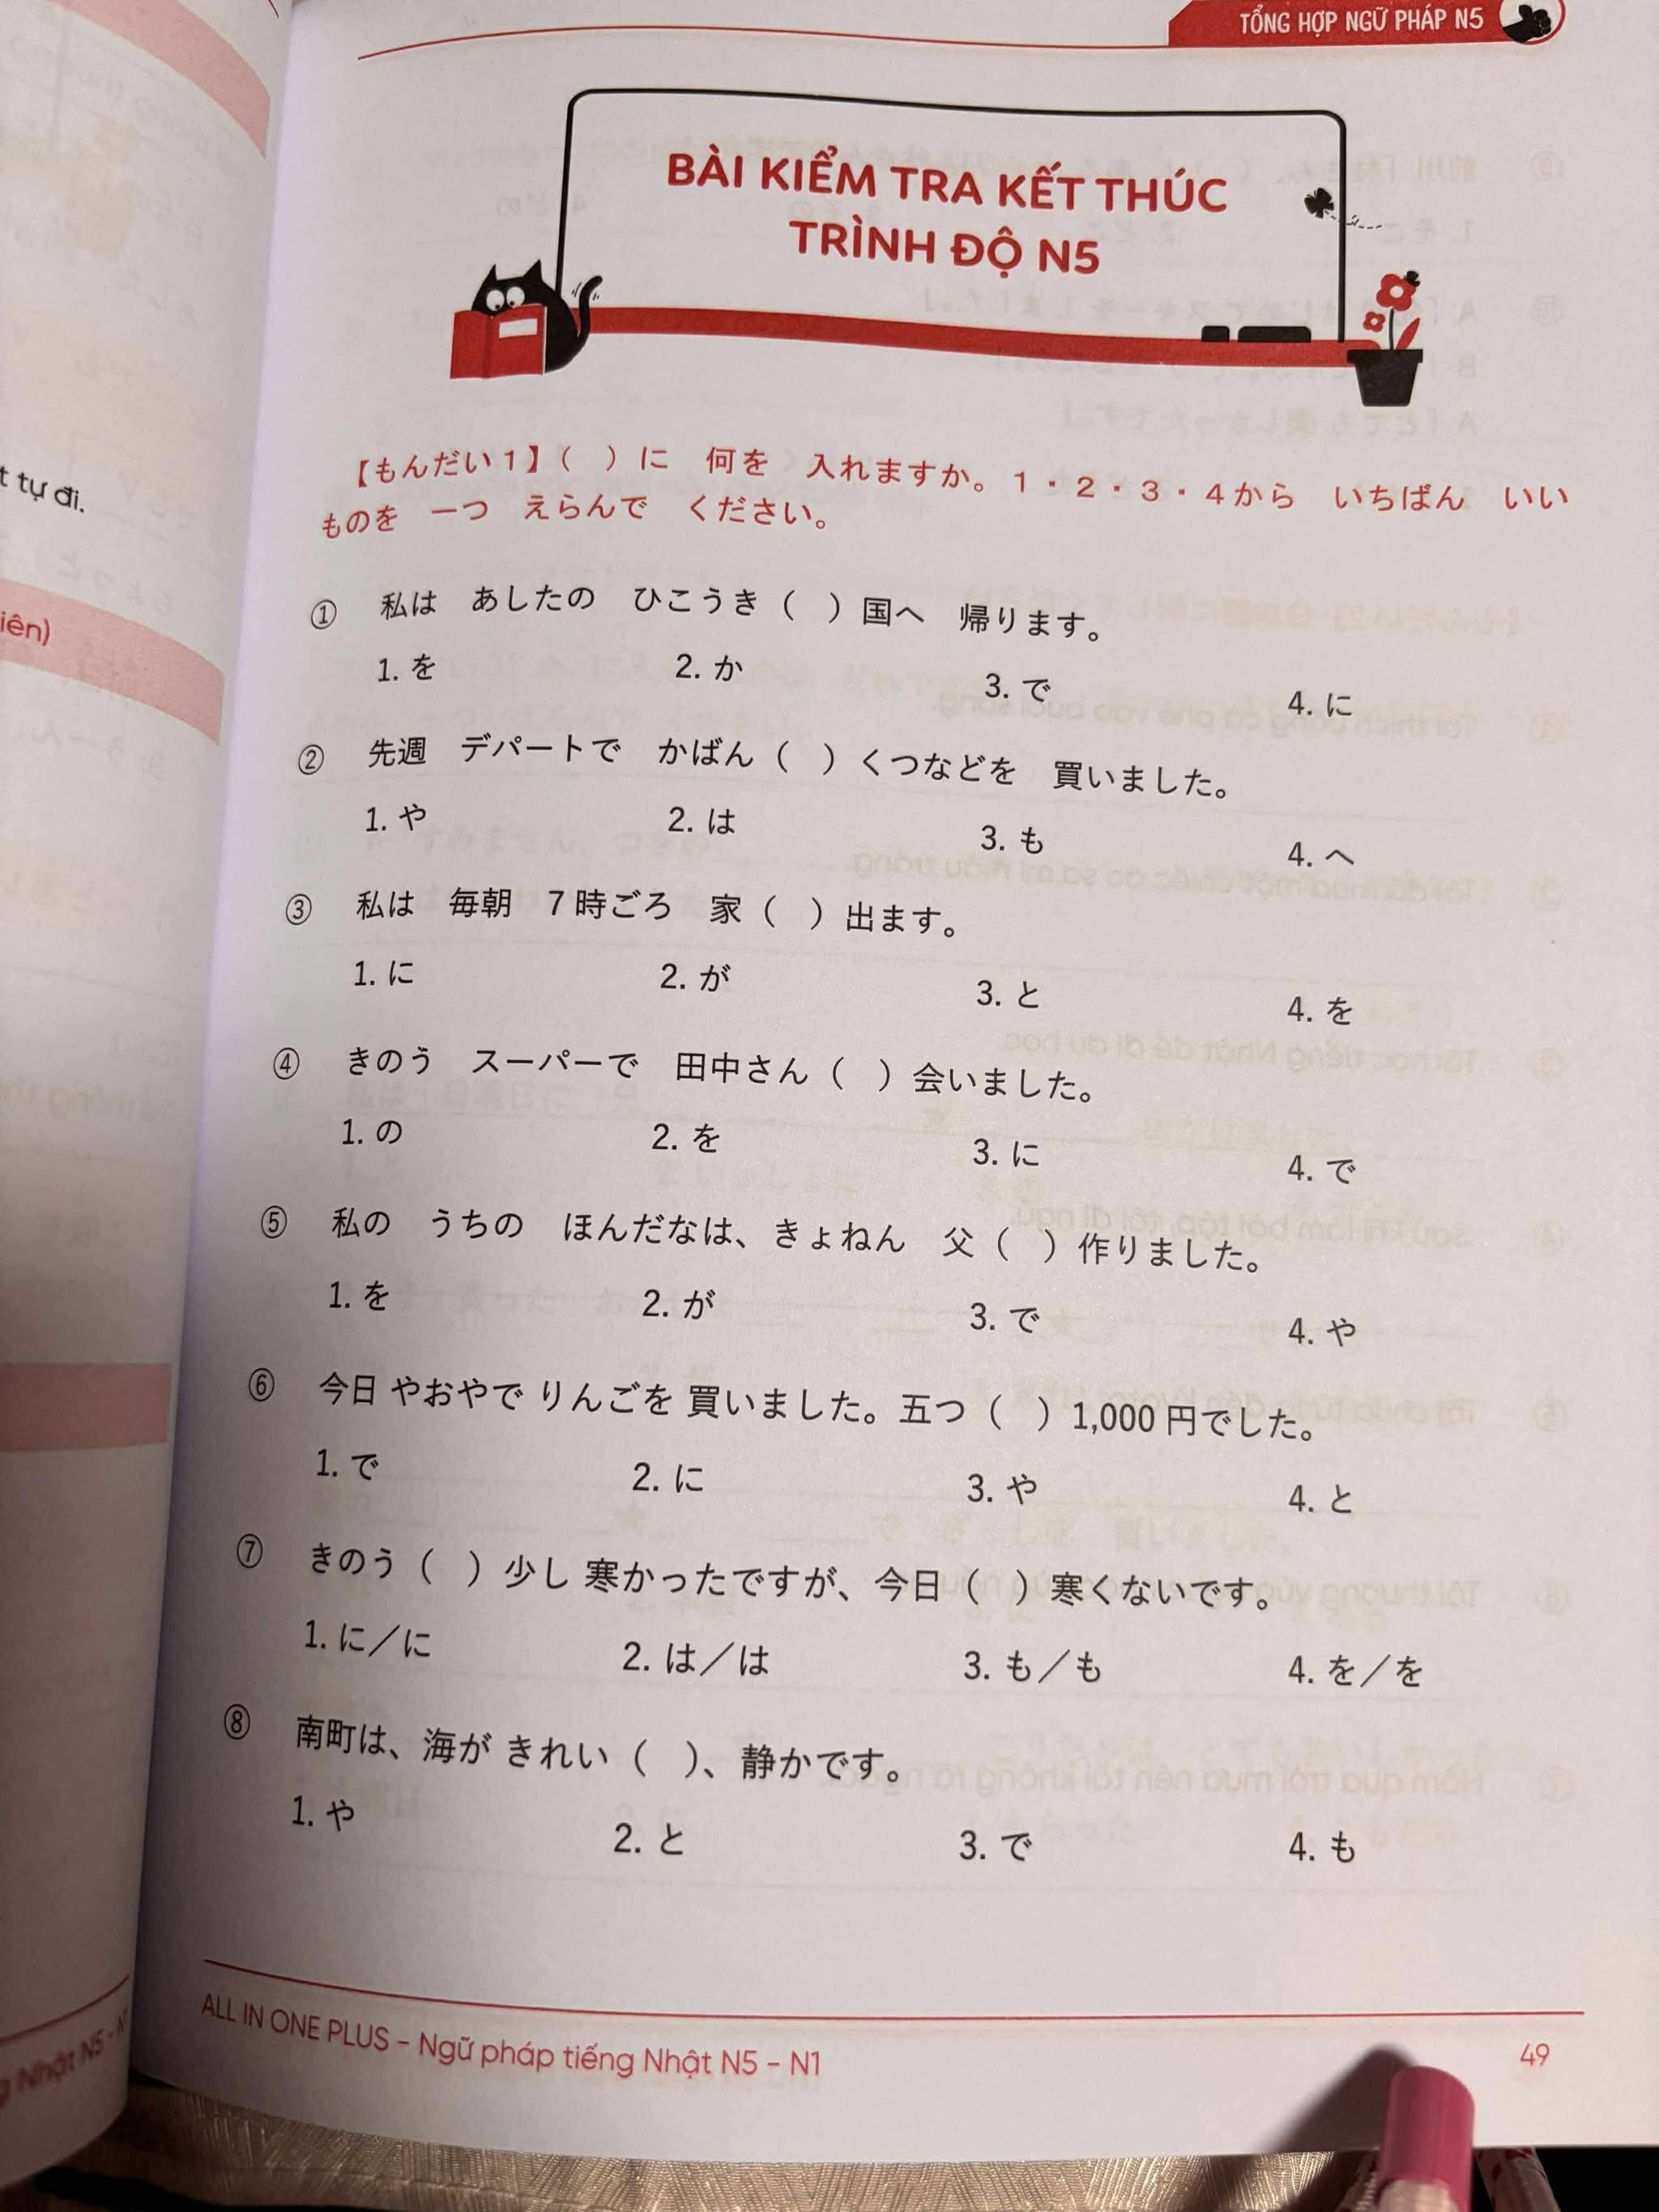 TỔNG HỢP NGỮ PHÁP N5
BÀI KIỂM TRA KẾT THÚC
TRÌNH ĐỘ N5
【もんだい1】（　）に　何を　入れますか。1・2・3・4から　いちばん　いい
ものを　一つ　えらんで　ください。
① 私は　あしたの　ひこうき（　）国へ　帰ります。
1. を 2. か 3. で 4. に
② 先週　デパートで　かばん（　）くつなどを　買いました。
1. や 2. は 3. も 4. へ
③ 私は　毎朝　7時ごろ　家（　）出ます。
1. に 2. が 3. と 4. を
④ きのう　スーパーで　田中さん（　）会いました。
1. の 2. を 3. に 4. で
⑤ 私の　うちの　ほんだなは、きょねん　父（　）作りました。
1. を 2. が 3. で 4. や
⑥ 今日 やおやで りんごを 買いました。五つ（　）1,000円でした。
1. で 2. に 3. や 4. と
⑦ きのう（　）少し 寒かったですが、今日（　）寒くないです。
1. に／に 2. は／は 3. も／も 4. を／を
⑧ 南町は、海が きれい（　）、静かです。
1. や 2. と 3. で 4. も
ALL IN ONE PLUS - Ngữ pháp tiếng Nhật N5 - N1
49
t tự đi.
iên)
Nhật N5 - N